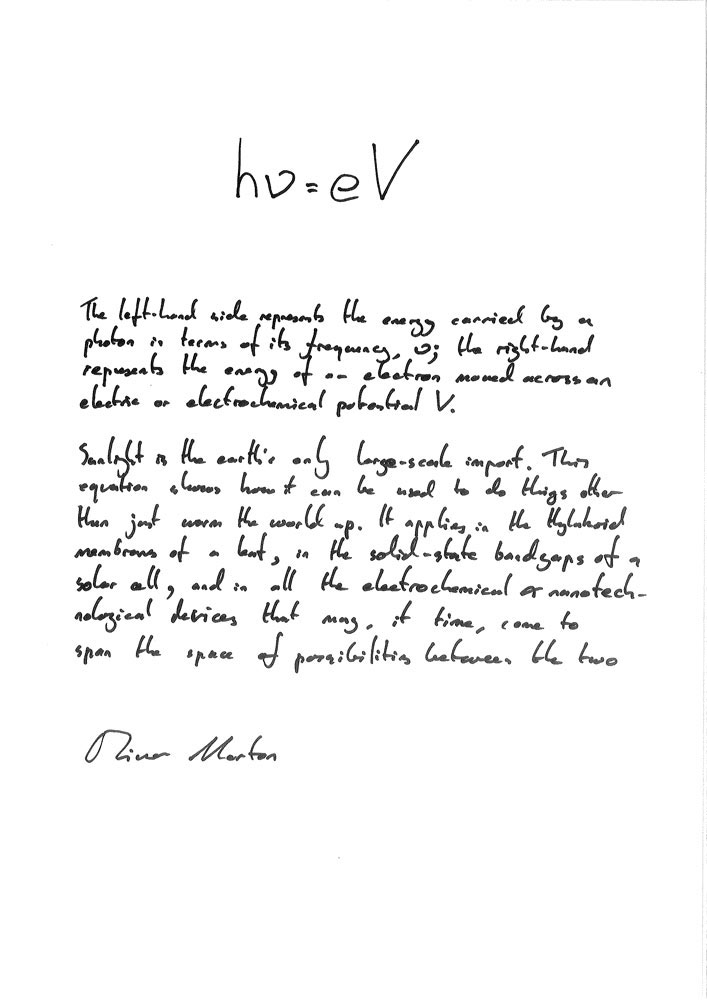 hν=eV
The left-hand side represents the energy carried by a
photon in terms of its frequency, ν; the right-hand
represents the energy of an electron moved across an
electric or electrochemical potential V.
Sunlight is the earth's only large-scale import. This
equation shows how it can be used to do things other
than just warm the world up. It applies in the thylakoid
membrans of a leaf, in the solid-state bandgaps of a
solar cell, and in all the electrochemical or nanotech-
nological devices that may, in time, come to
span the space of possibilities between the two
Oliver Morton